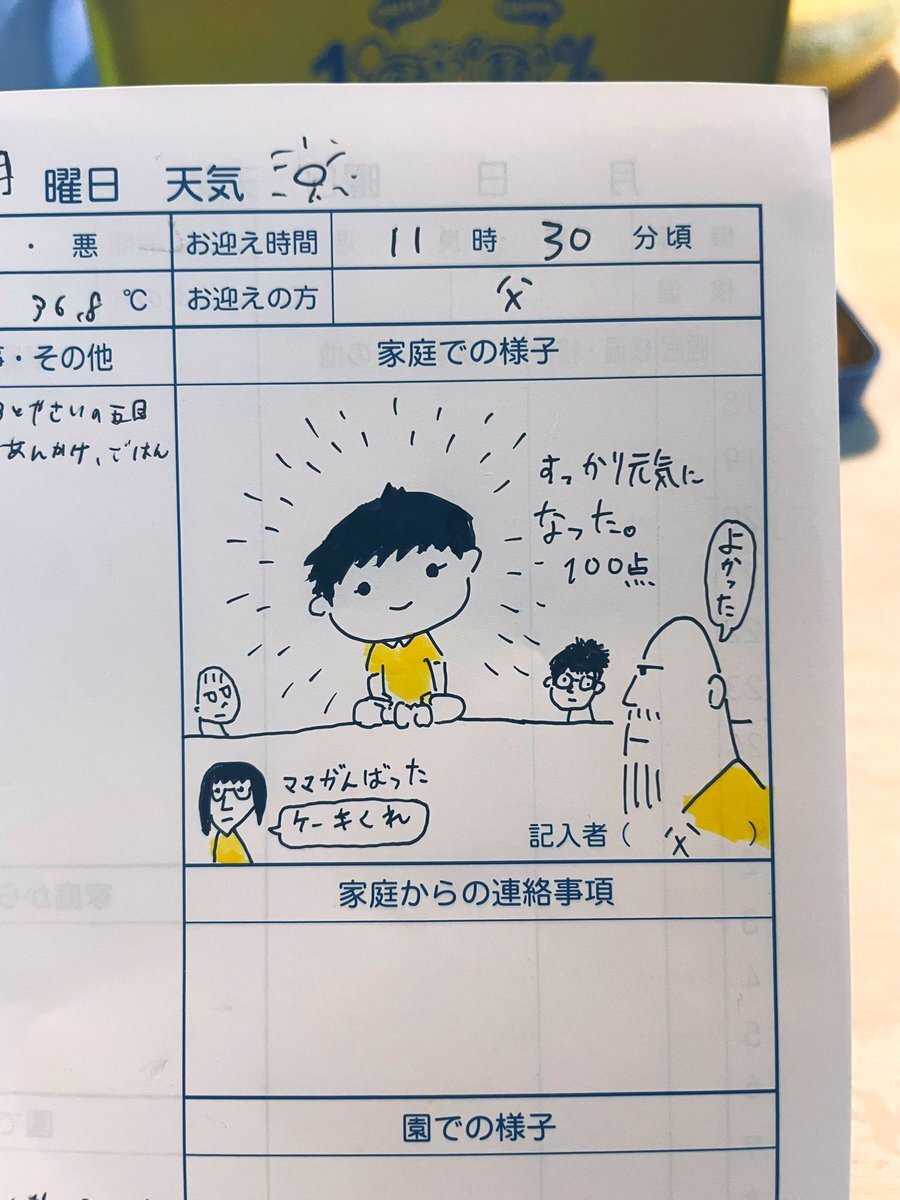 曜日 天気
・ 悪 お迎え時間 11 時 30 分頃
36.8 ℃ お迎えの方 父
・その他 家庭での様子
とやさいの五目
あんかけ、ごはん
すっかり元気に
なった。
100点
よかった
ママがんばった
ケーキくれ
記入者( 父 )
家庭からの連絡事項
園での様子